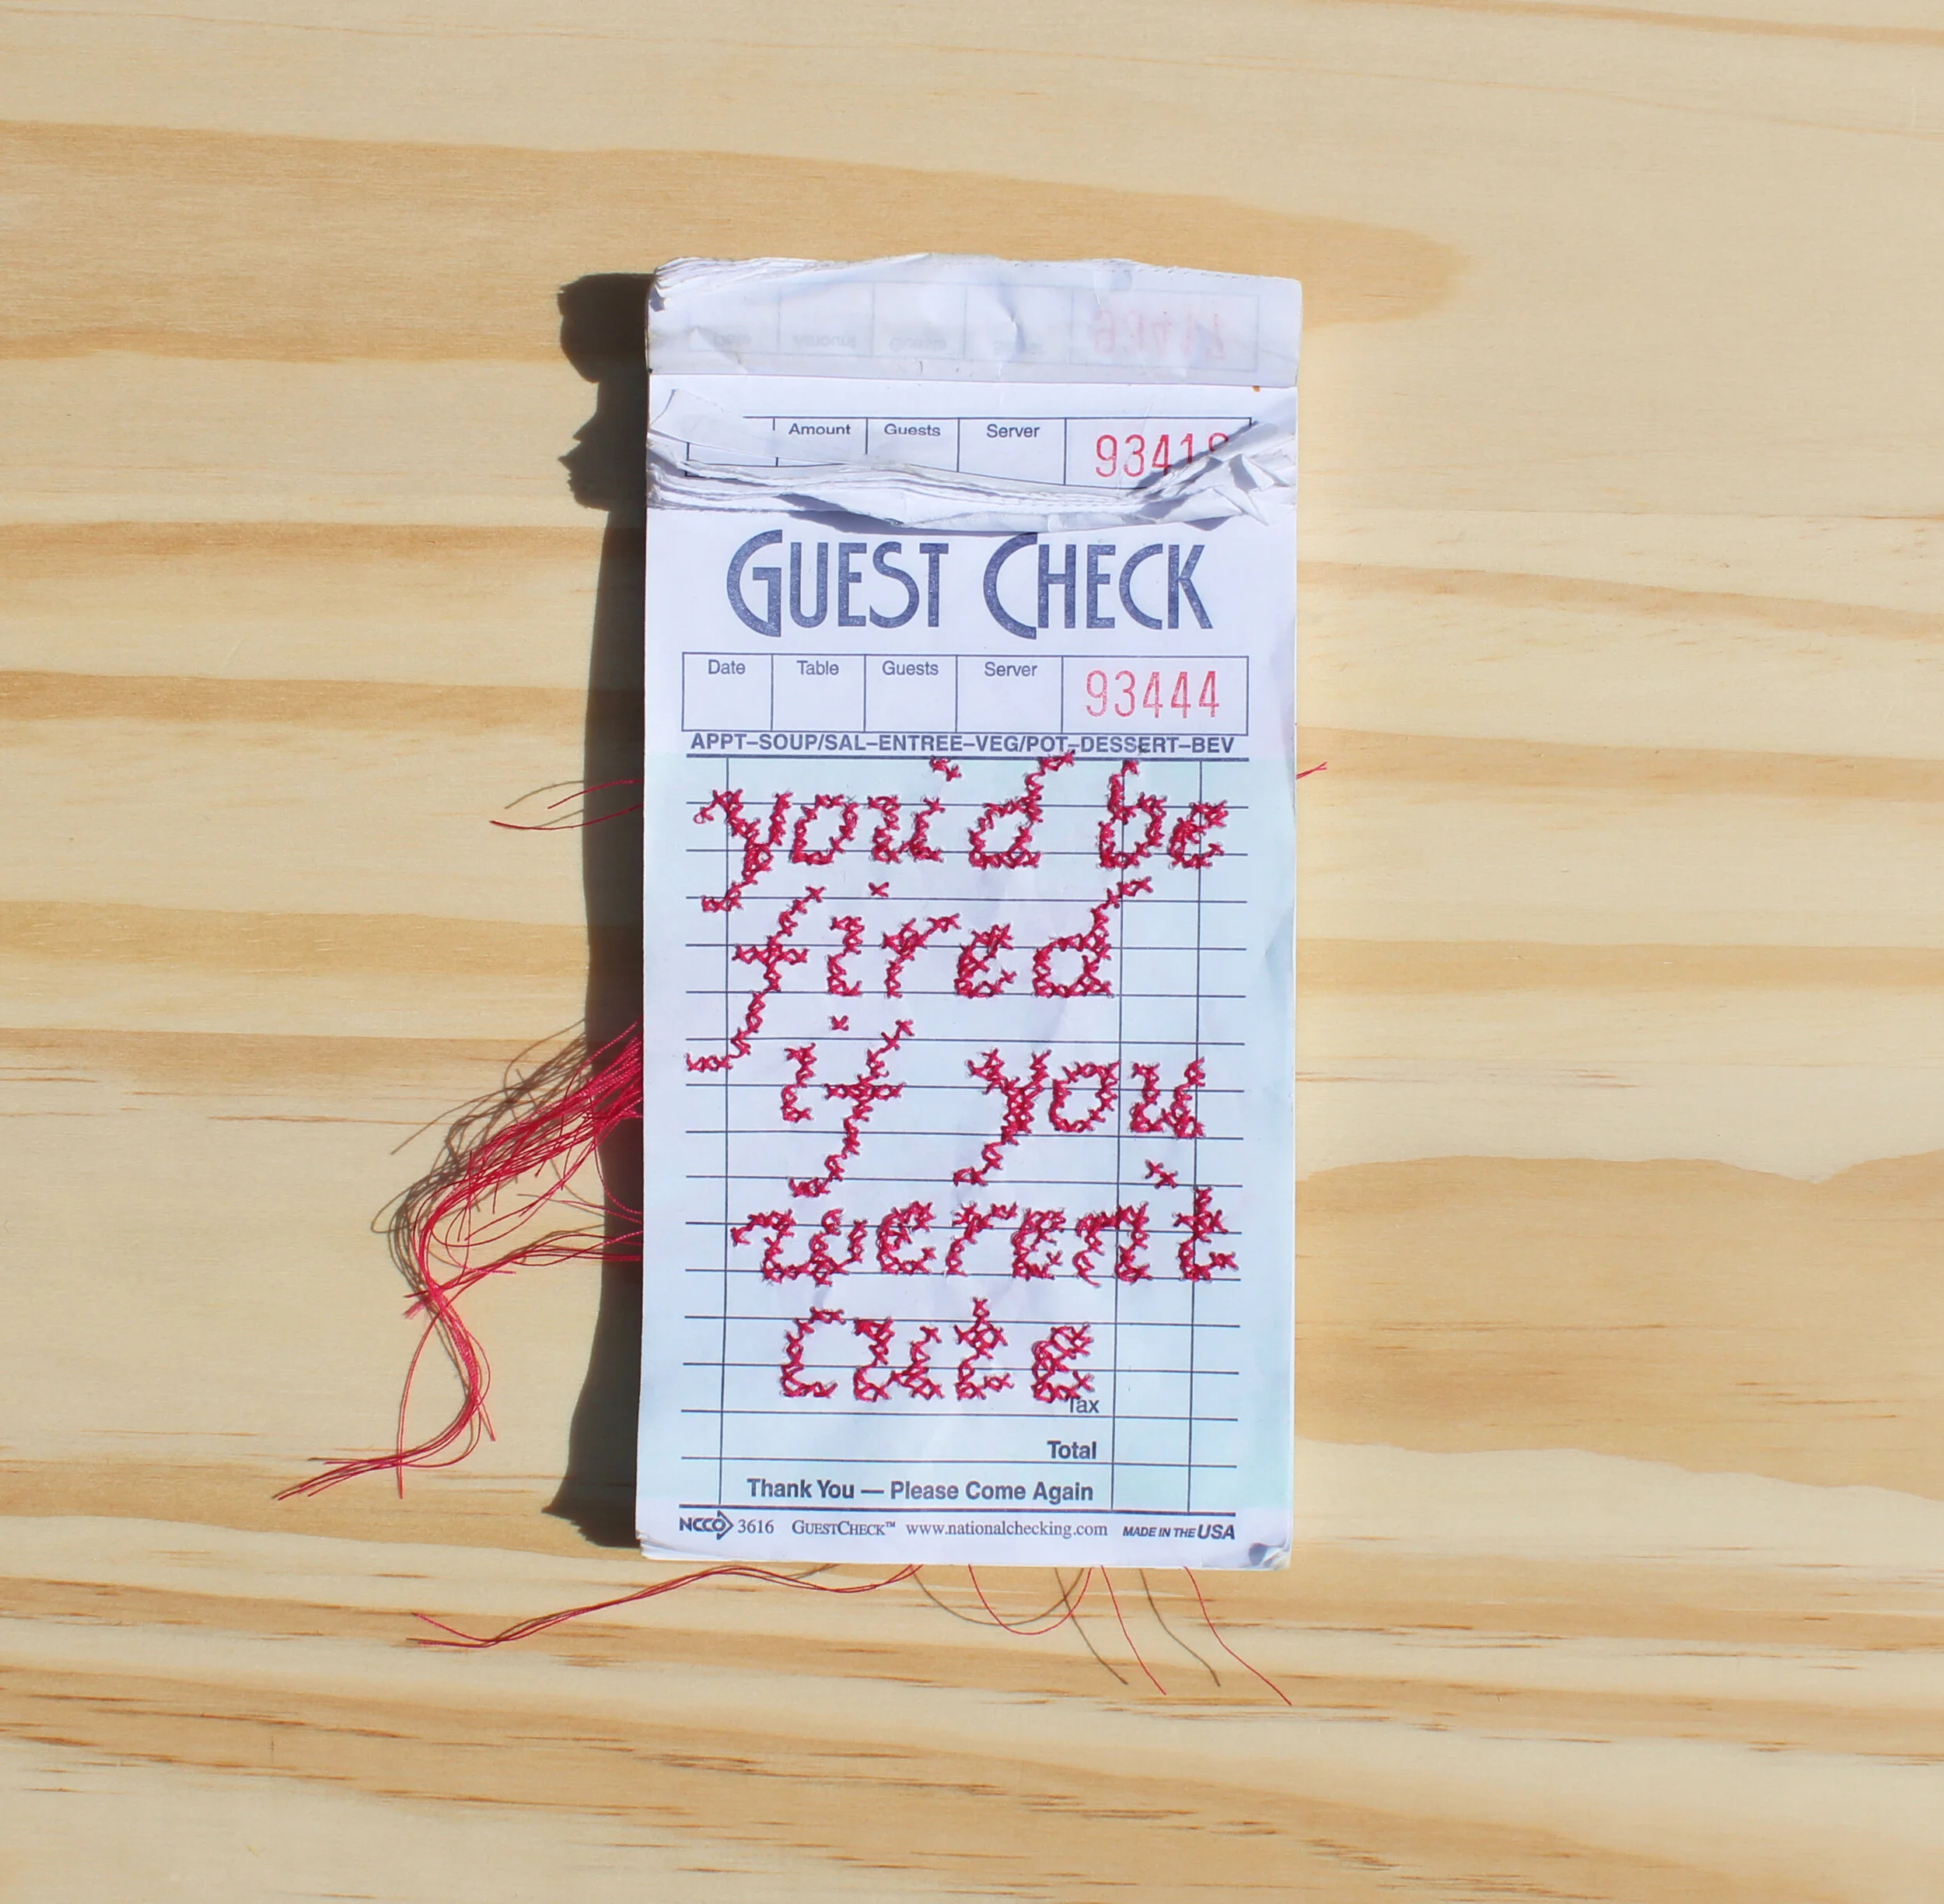 Amount Guests Server
GUEST CHECK
Date Table Guests Server 93444
APPT–SOUP/SAL–ENTREE–VEG/POT–DESSERT–BEV
you'd be
fired
if you
weren't
cute
Tax
Total
Thank You — Please Come Again
NCCO 3616 GUESTCHECK™ www.nationalchecking.com MADE IN THE USA